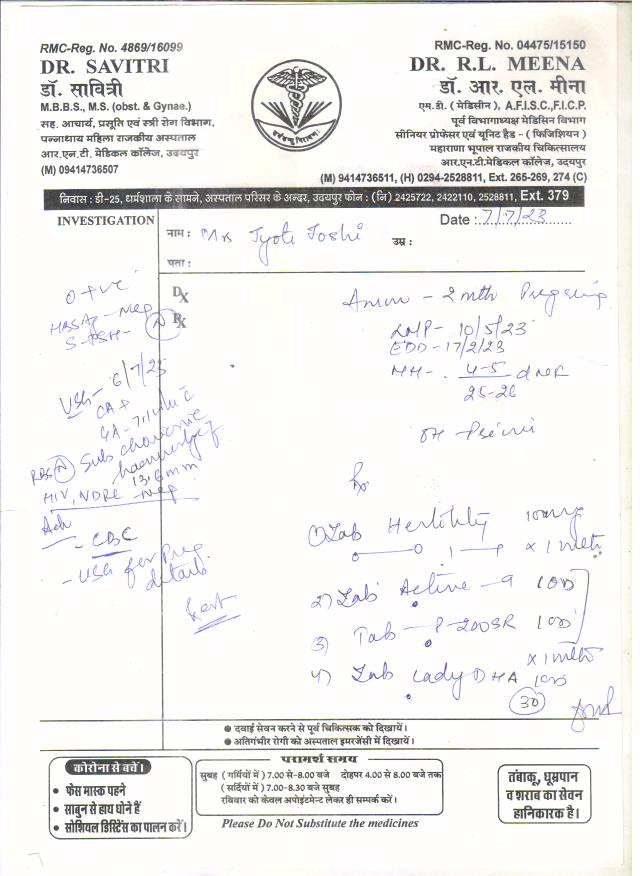 RMC-Reg. No. 4869/16099
DR. SAVITRI
डॉ. सावित्री
M.B.B.S., M.S. (obst. & Gynae.)
सह. आचार्य, प्रसूति एवं स्त्री रोग विभाग,
पन्नाधाय महिला राजकीय अस्पताल
आर.एन.टी. मेडिकल कॉलेज, उदयपुर
(M) 09414736507
RMC-Reg. No. 04475/15150
DR. R.L. MEENA
डॉ. आर. एल. मीना
एम.डी. ( मेडिसीन ), A.F.I.S.C.,F.I.C.P.
पूर्व विभागाध्यक्ष मेडिसिन विभाग
सीनियर प्रोफेसर एवं यूनिट हैड - ( फिजिशियन )
महाराणा भूपाल राजकीय चिकित्सालय
आर.एन.टी.मेडिकल कॉलेज, उदयपुर
(M) 9414736511, (H) 0294-2528811, Ext. 265-269, 274 (C)
निवास : डी-25, धर्मशाला के सामने, अस्पताल परिसर के अन्दर, उदयपुर फोन : (नि) 2425722, 2422110, 2528811, Ext. 379
INVESTIGATION
Date : 7/7/23
नाम : Mrs Jyoti Joshi
उम्र :
पता :
O +ve
HBSAg - Neg
S-TSH- N
USG- 6/7/23
Sub chorionic
haemorrhage
13.6mm
RBS N
HIV, VDRL - Neg
Adv
- CBC
- USG for Preg.
details
Rest
Dx
Rx
Amen - 2 mth Preg
LMP- 10/5/23
EDD- 17/2/23
MH- 4-5
25-26
OH -
Rx
1) Tab Hertility
x 1 mth
2) Tab Active - 9 1 OD
3) Tab - P-200SR 1 OD
x 1 mth
4) Tab Lady DHA 1 OD
30
● दवाई सेवन करने से पूर्व चिकित्सक को दिखायें।
● अतिगंभीर रोगी को अस्पताल इमरजेंसी में दिखायें।
कोरोना से बचें।
● फेस मास्क पहने
● साबुन से हाथ धोने हैं
● सोशियल डिस्टेंस का पालन करें।
परामर्श समय
सुबह ( गर्मियों में ) 7.00 से-8.00 बजे दोहपर 4.00 से 8.00 बजे तक
( सर्दियों में ) 7.00-8.30 बजे सुबह
रविवार को केवल अपोइंटमेन्ट लेकर ही सम्पर्क करें।
Please Do Not Substitute the medicines
तंबाकू, धूम्रपान
व शराब का सेवन
हानिकारक है।